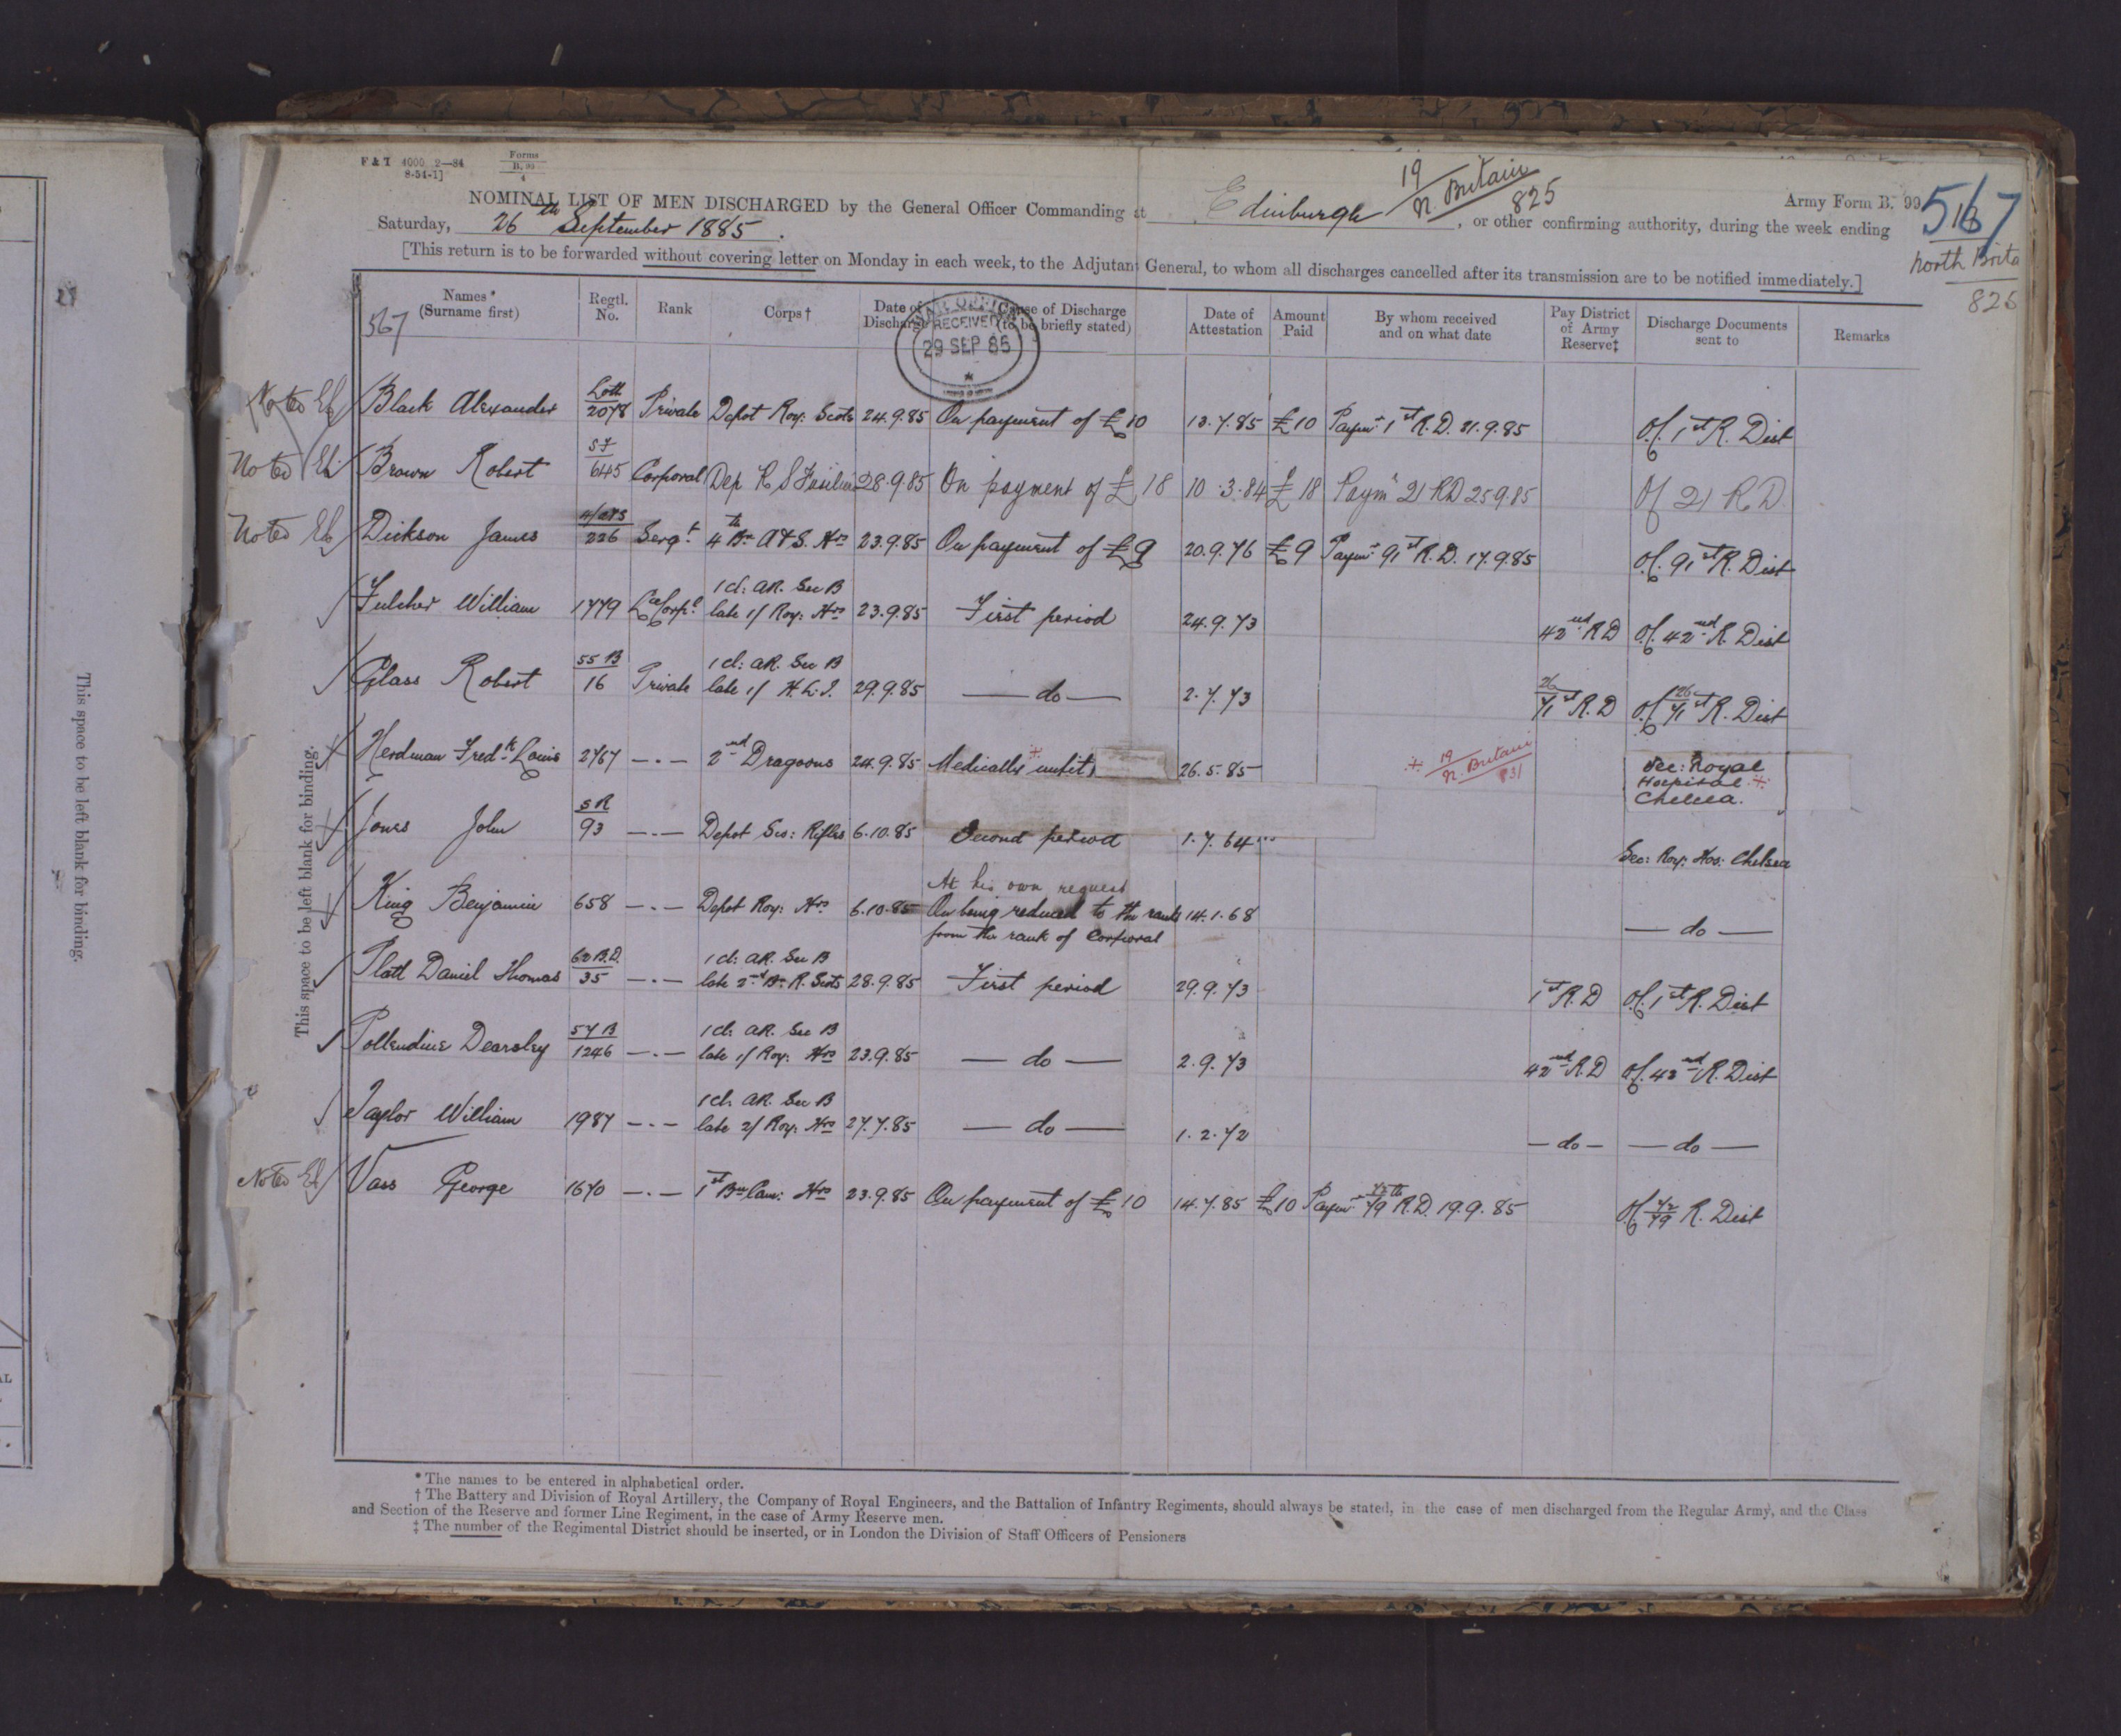 F & T 4000 2—84
8-54-1]
Forms
B. 99
4
NOMINAL LIST OF MEN DISCHARGED by the General Officer Commanding at Edinburgh, or other confirming authority, during the week ending
Saturday, 26th September 1885.
19
N. Britain
825
Army Form B. 99
567
North Brit
826
[This return is to be forwarded without covering letter on Monday in each week, to the Adjutant General, to whom all discharges cancelled after its transmission are to be notified immediately.]
Names* (Surname first) Regtl. No. Rank Corps† Date of Discharge Cause of Discharge (to be briefly stated) Date of Attestation Amount Paid By whom received and on what date Pay District of Army Reserve‡ Discharge Documents sent to Remarks
567
RECEIVED
29 SEP 85
Noted Black Alexander Loth/2078 Private Depot Roy: Scots 24.9.85 On payment of £10 13.7.85 £10 Paymr 1st R.D. 21.9.85 Of. 1st R. Dist
Noted Brown Robert SF/645 Corporal Dep R S Fusiliers 28.9.85 On payment of £18 10.3.84 £18 Paymr 21 RD 25.9.85 Of 21 R D.
Noted Dickson James 226 Sergt 4th Bn A & S. Hrs 23.9.85 On payment of £9 20.9.76 £9 Paymr 91st R.D. 17.9.85 Of. 91st R. Dist
Fulcher William 1779 Lce Corpl 1 cl: AR. Sec B late 1/ Roy: Hrs 23.9.85 First period 24.9.73 42nd R D Of. 42nd R. Dist
Glass Robert 55 B/16 Private 1 cl: AR. Sec B late 1/ H.L.I. 29.9.85 — do — 2.7.73 26/71st R.D Of 26/71st R. Dist
Herdman Fredk Louis 2767 —.— 2nd Dragoons 24.9.85 Medically unfit 26.5.85 19/N. Britain 831 Sec: Royal Hospital Chelsea.
Jones John SR/93 —.— Depot Sco: Rifles 6.10.85 Second period 1.7.64 Sec: Roy: Hos: Chelsea
King Benjamin 658 —.— Depot Roy: Hrs 6.10.85 At his own request On being reduced to the ranks from the rank of Corporal 14.1.68 — do —
Platt Daniel Thomas 62 B.D./35 —.— 1 cl: AR. Sec B late 2nd Bn R. Scots 28.9.85 First period 29.9.73 1st R.D Of. 1st R. Dist
Pollendine Dearsley 57 B/1246 —.— 1 cl: AR. Sec B late 1/ Roy: Hrs 23.9.85 — do — 2.9.73 42nd R.D Of. 42nd R. Dist
Taylor William 1987 —.— 1 cl: AR. Sec B late 2/ Roy: Hrs 27.7.85 — do — 1.2.72 — do — — do —
Noted Vass George 1670 —.— 1st Bn Cam: Hrs 23.9.85 On payment of £10 14.7.85 £10 Paymr 79 R.D. 19.9.85 Of 72/79 R. Dist
This space to be left blank for binding.
This space to be left blank for binding.
* The names to be entered in alphabetical order.
† The Battery and Division of Royal Artillery, the Company of Royal Engineers, and the Battalion of Infantry Regiments, should always be stated, in the case of men discharged from the Regular Army, and the Class
and Section of the Reserve and former Line Regiment, in the case of Army Reserve men.
‡ The number of the Regimental District should be inserted, or in London the Division of Staff Officers of Pensioners